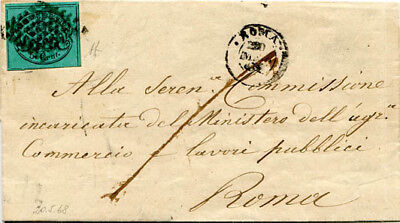 ROMA
Alla Seren. Commissione
incaricata del Ministero dell'agr.
Commercio e lavori pubblici
Roma
20.5.68